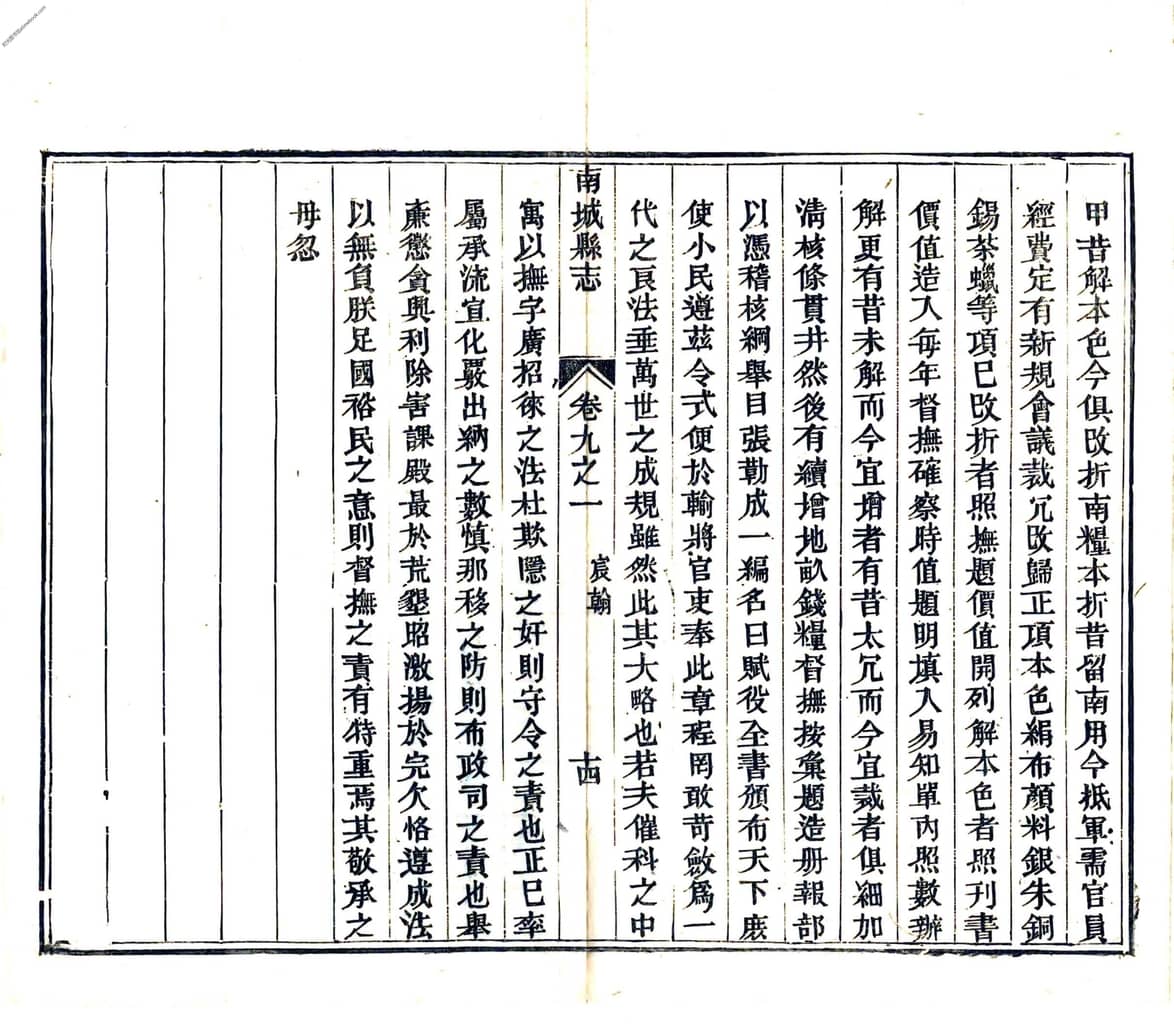 甲昔解本色今俱改折南糧本折昔留南用今抵軍需官員
經費定有新規會議裁冗改歸正項本色絹布顏料銀朱銅
錫茶蠟等項已改折者照撫題價值開列解本色者照刊書
價值造入每年督撫確察時值題明填入易知單內照數辦
解更有昔未解而今宜增者有昔太冗而今宜裁者俱細加
淸核條貫井然後有續增地畝錢糧督撫按彙題造册報部
以憑稽核綱舉目張勒成一編名曰賦役全書頒布天下庶
使小民遵茲令式便於輸將官吏奉此章程罔敢苛斂爲一
代之良法垂萬世之成規雖然此其大略也若夫催科之中
南城縣志
卷九之一
宸翰
十四
寓以撫字廣招徠之法杜欺隱之奸則守令之責也正已率
屬承流宣化覈出納之數慎那移之防則布政司之責也舉
廉懲貪興利除害課殿最於荒墾昭激揚於完欠恪遵成法
以無負朕足國裕民之意則督撫之責有特重焉其敬承之
毋忽